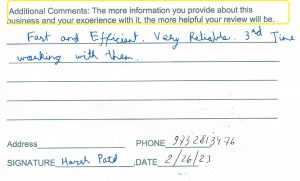 Additional Comments: The more information you provide about this
business and your experience with it, the more helpful your review will be.
Fast and Efficient. Very Reliable. 3rd Time
working with them.
Address
PHONE 9732813476
SIGNATURE Harsh Patel ,DATE 2/26/23